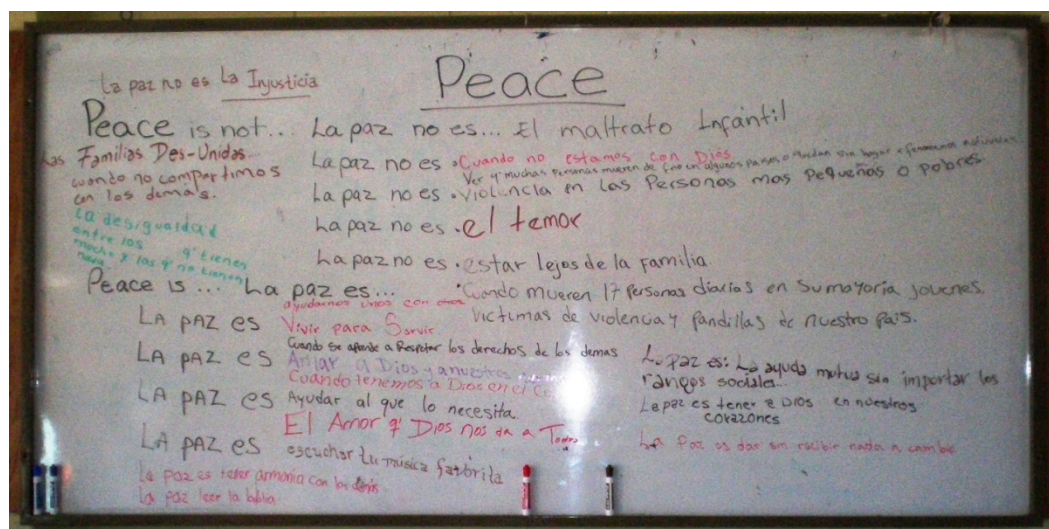 La paz no es La Injusticia
Peace
Peace is not... La paz no es... El maltrato Infantil
Las Familias Des-Unidas...
cuando no compartimos
con los demás.
La desigualdad
entre los q' tienen
mucho y los q' no tienen
nada
La paz no es • Cuando no estamos con Dios
Ver q' muchas personas mueren de en algunos paises o quedan sin hogar x fenomenos naturales
La paz no es • Violencia en Las Personas mas Pequeñas o pobres.
La paz no es • el temor
La paz no es • estar lejos de la familia.
• Cuando mueren 17 Personas diarias en Su mayoría jovenes.
victimas de violencia y Pandillas de nuestro país.
Peace is ... La paz es...
ayudarnos unos con otros
LA PAZ es Vivir para Servir
Cuando se aprende a Respetar los derechos de los demas
LA PAZ es Amar a Dios y a nuestros
Cuando tenemos a Dios en el
LA PAZ es Ayudar al que lo necesita.
El Amor q' Dios nos da a Todos
LA PAZ es escuchar tu música favorita
La paz es tener armonía con los demás
La paz leer la biblia
La paz es: La ayuda mutua sin importar los
rangos sociales...
La paz es tener a Dios en nuestros
corazones
La Paz es dar sin recibir nada a cambio